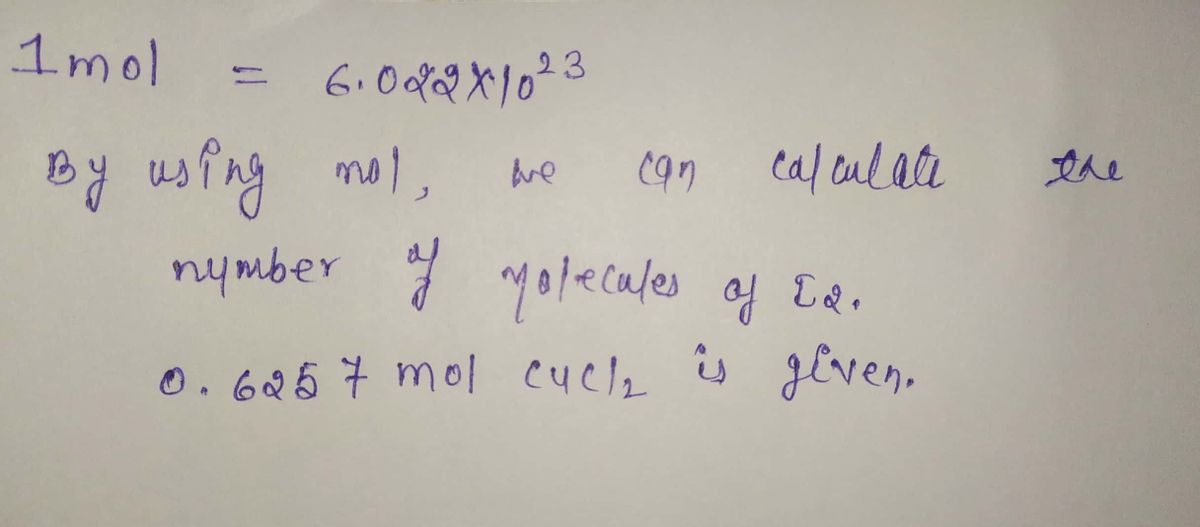 1 mol = 6.022×10²³
By using mol, we can calculate the
number of molecules of I2.
0.6257 mol CuCl₂ is given.